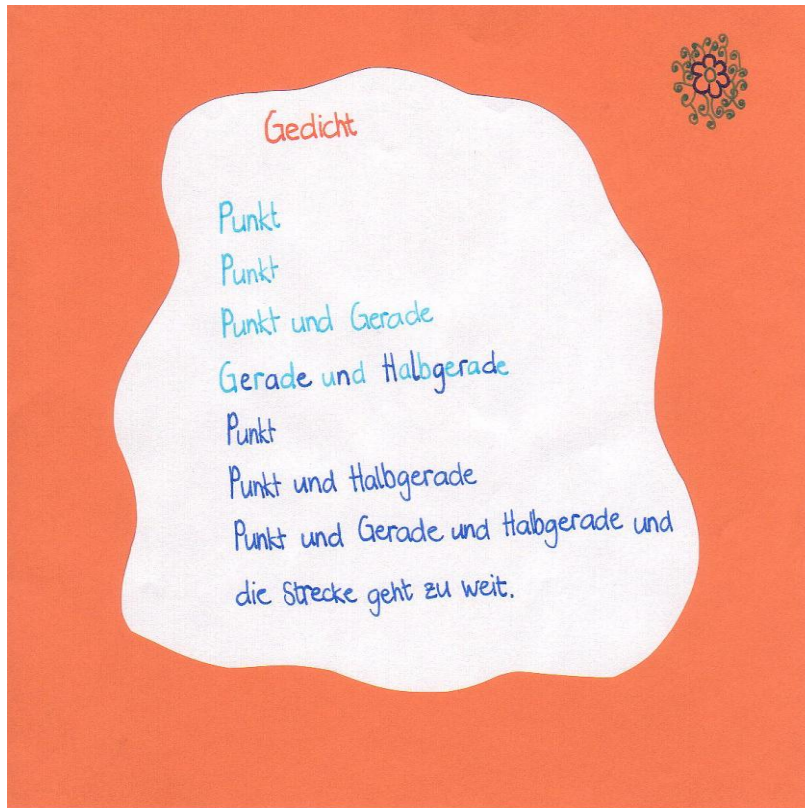 Gedicht
Punkt
Punkt
Punkt und Gerade
Gerade und Halbgerade
Punkt
Punkt und Halbgerade
Punkt und Gerade und Halbgerade und
die Strecke geht zu weit.